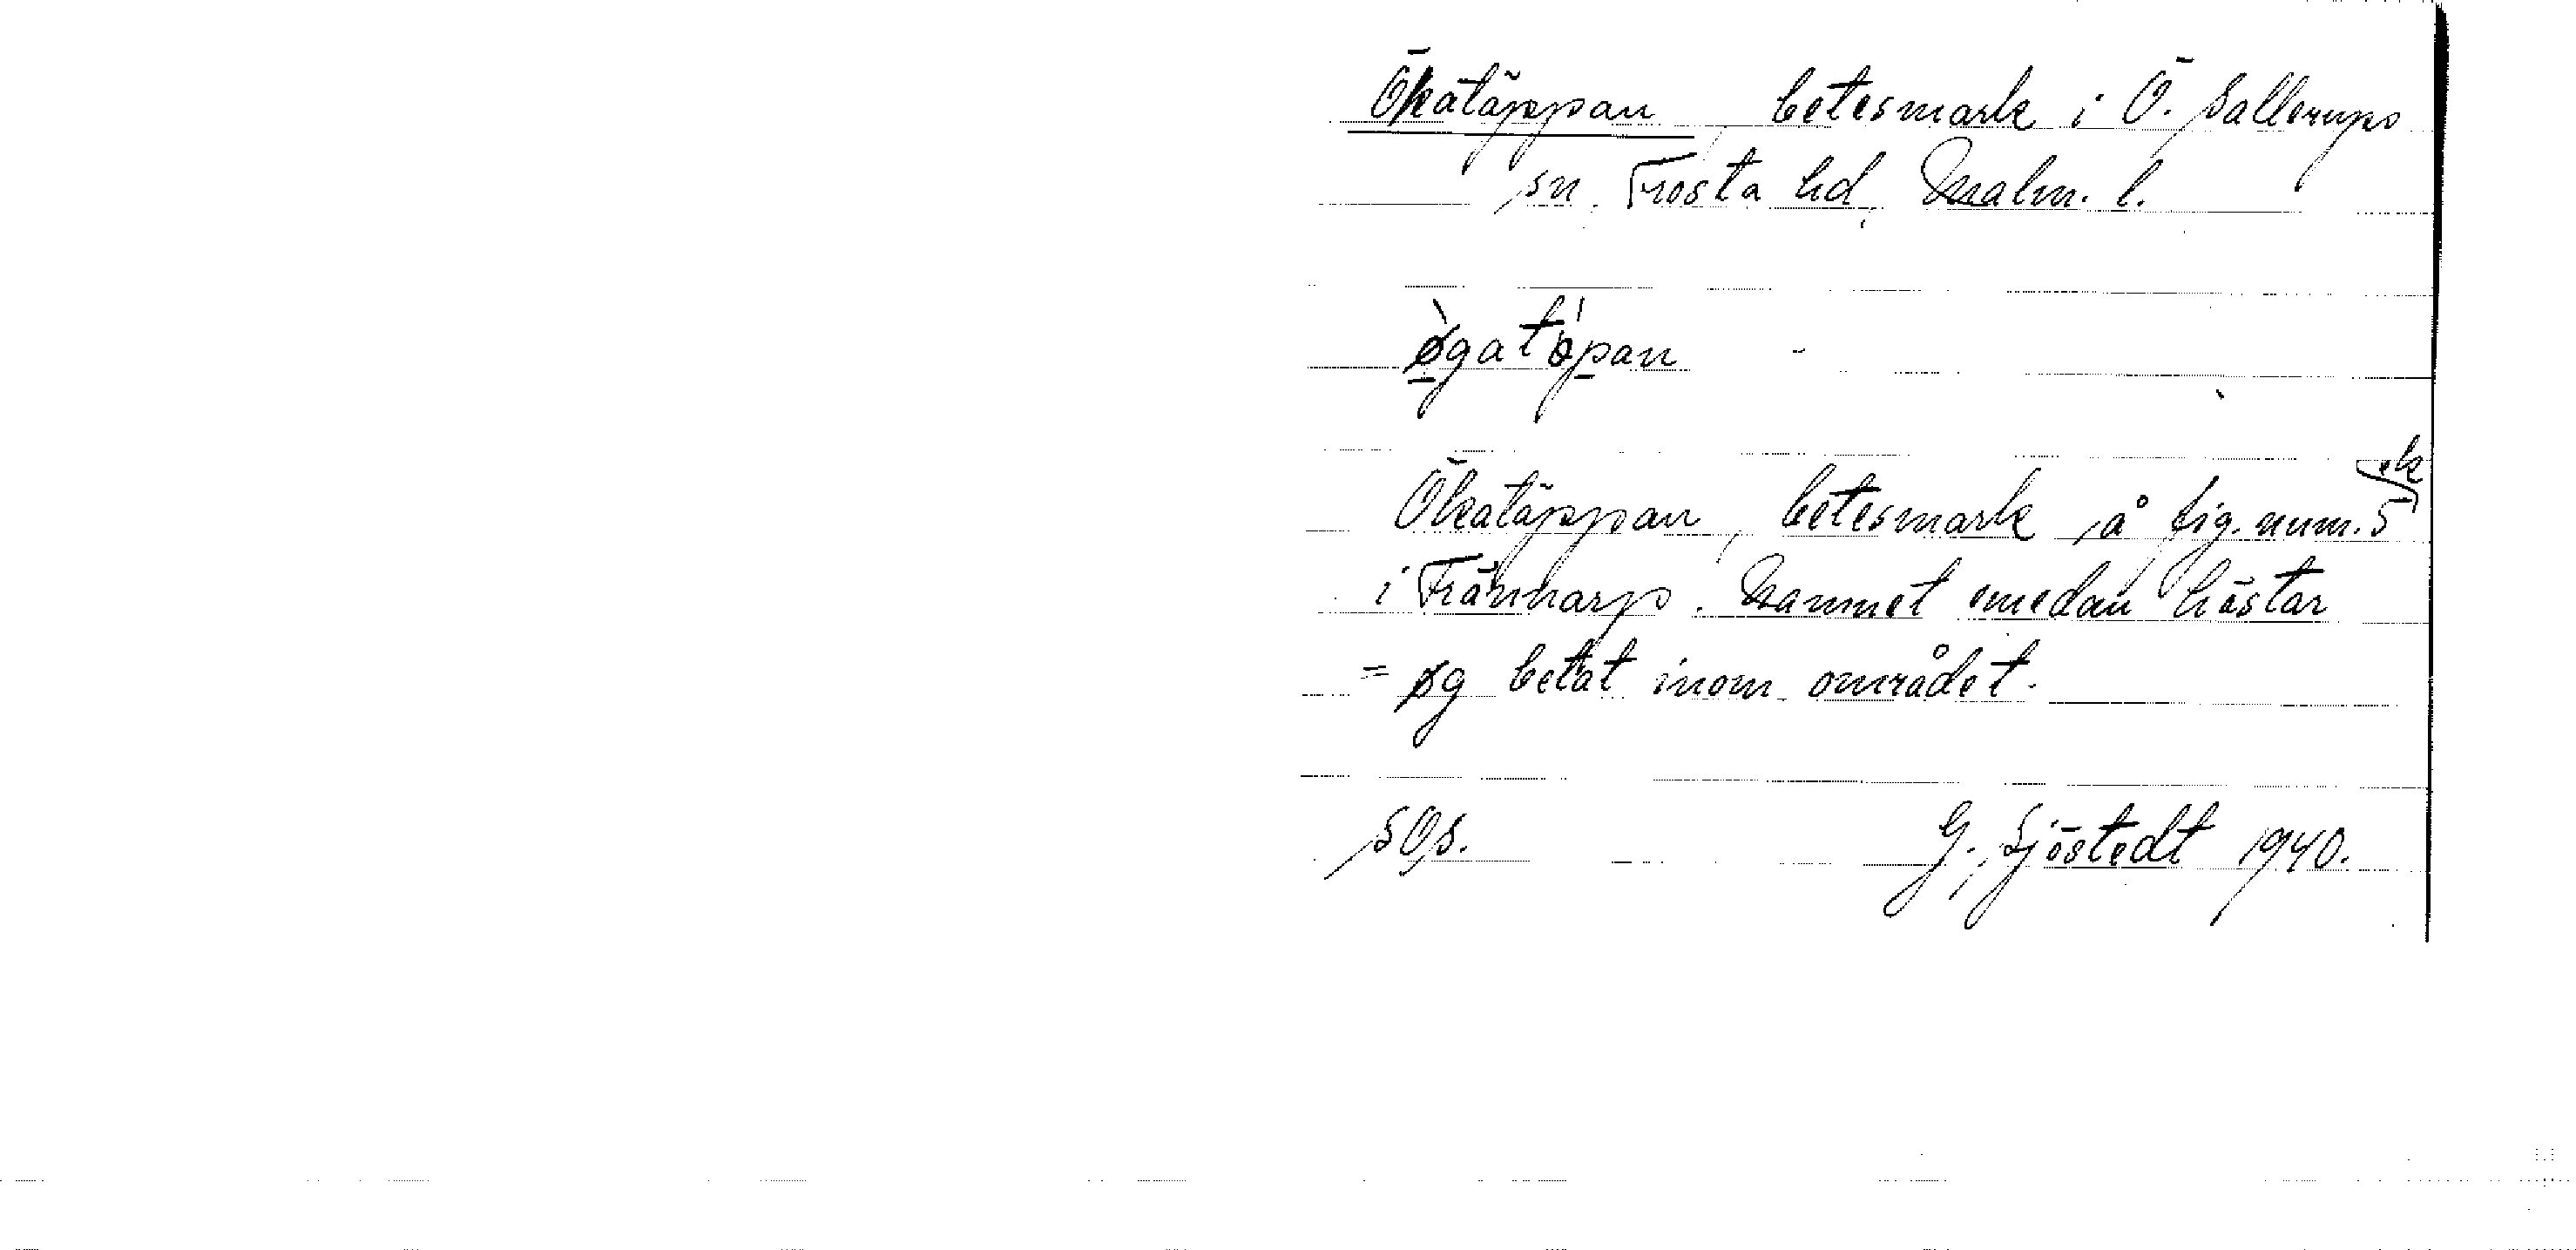 Ökatäppan, betesmark i Ö. Sallerups
sn. Frosta hd, Malm. l.
ø̀gatópan
Ökatäppan, betesmark å fig. num. 5 ek
i Tränharp. Namnet emedan hästar
= øg betat inom området.
SOS. G. Sjöstedt 1940.